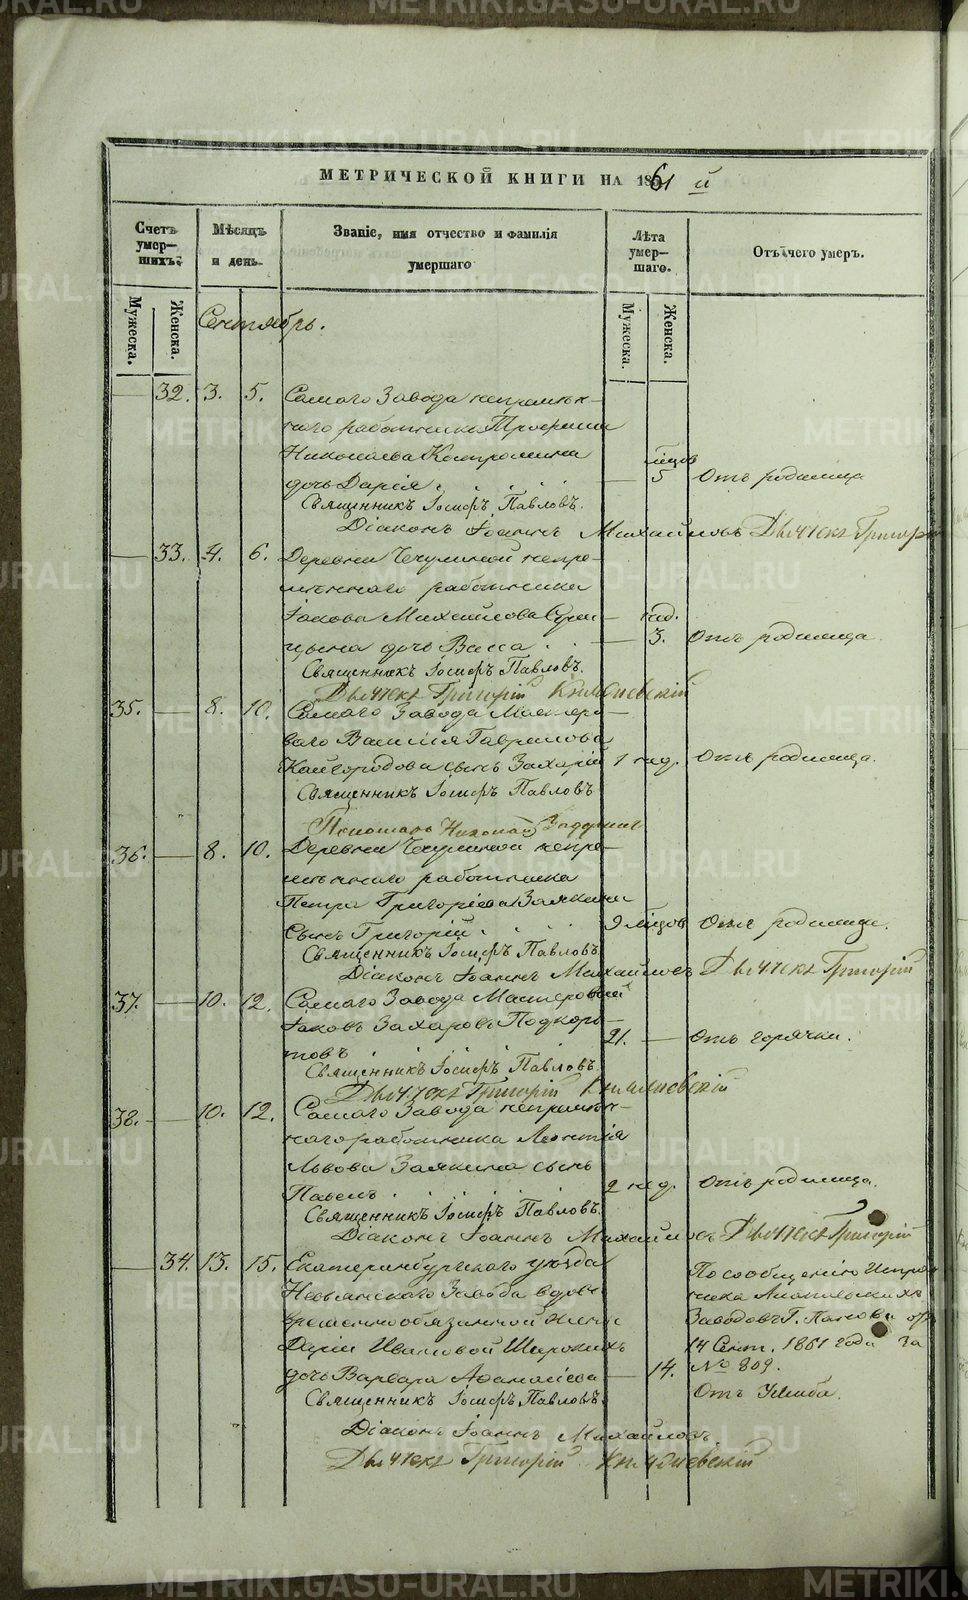 МЕТРИЧЕСКОЙ КНИГИ НА 1861 й
Счетъ умер-шихъ.
Мѣсяцъ и день.
Званіе, имя отчество и фамилія умершаго
Лѣта умер-шаго.
Отъ чего умеръ.
Мужеска.
Женска.
Мужеска.
Женска.
Сентябрь.
32. 3. 5. Самаго Завода непремѣн-
наго работника
Николаева дочь Дарья. 5 мѣсяцов Отъ родимца
Священникъ Іосифъ Павловъ.
Діаконъ Іоаннъ Михайловъ Дьячекъ Григорій
33. 4. 6. Деревни непре-
мѣннаго работника
Іакова Михайлова
дочь Васса. нед. 3. Отъ родимца.
Священникъ Іосифъ Павловъ.
Дьячекъ Григорій
35. 8. 10. Самаго Завода Мастеро-
ваго Василія Гаврилова
Кайгородова сынъ Захарій 1 нед. Отъ родимца.
Священникъ Іосифъ Павловъ
Пономарь Николай
36. 8. 10. Деревни непре-
мѣннаго работника
Петра Григоріева Заякина
сынъ Григорій. 9 мѣсяцов Отъ родимца.
Священникъ Іосифъ Павловъ.
Діаконъ Іоаннъ Михайловъ Дьячекъ Григорій
37. 10. 12. Самаго Завода Мастеровый
Іаковъ Захаровъ Подкоры-
товъ. 21. Отъ горячки.
Священникъ Іосифъ Павловъ.
Дьячекъ Григорій
38. 10. 12. Самаго Завода непремѣн-
наго работника Леонтія
Львова Заякина сынъ
Павелъ. 2 нед. Отъ родимца.
Священникъ Іосифъ Павловъ.
Діаконъ Іоаннъ Михайловъ Дьячекъ Григорій
34. 13. 15. Екатеринбургскаго уѣзда
Невьянскаго Завода вдовы
обязанной
Дарьи Ивановой Широкихъ
дочь Варвара Афанасіева 14.
По сообщенію Исправ-
ника
Заводовъ Г. отъ
14 Сент. 1861 года за
№ 809.
Отъ Ушиба.
Священникъ Іосифъ Павловъ.
Діаконъ Іоаннъ Михайловъ.
Дьячекъ Григорій
METRIKI.GASO-URAL.RU